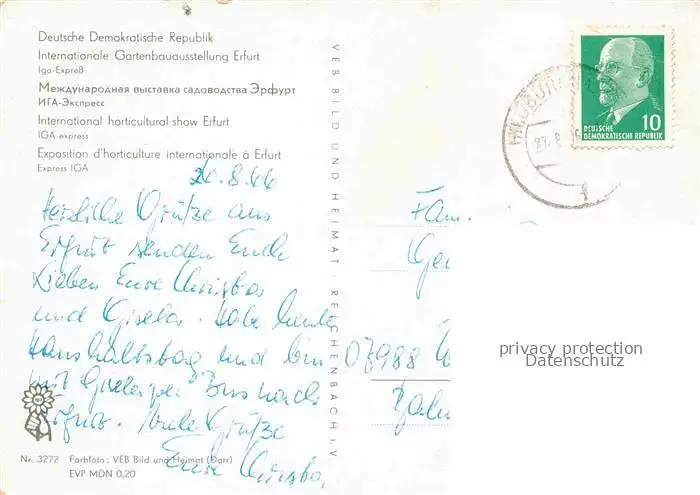 Deutsche Demokratische Republik
Internationale Gartenbauausstellung Erfurt
Iga-Expreß
Международная выставка садоводства Эрфурт
ИГА-Экспресс
International horticultural show Erfurt
IGA express
Exposition d'horticulture internationale à Erfurt
Express IGA
20.8.66
Herzliche Grüße aus
Erfurt senden Euch
Lieben Eure Christa
und Gisela. Habe heute
Haushaltstag und bin
mit Gisela per Bus nach
Erfurt. Viele Grüße
Eure Christa
Nr. 3272 Farbfoto: VEB Bild und Heimat (Darr)
EVP MDN 0,20
VEB BILD UND HEIMAT · REICHENBACH I. V.
10
DEUTSCHE
DEMOKRATISCHE REPUBLIK
Fam.
privacy protection
Datenschutz